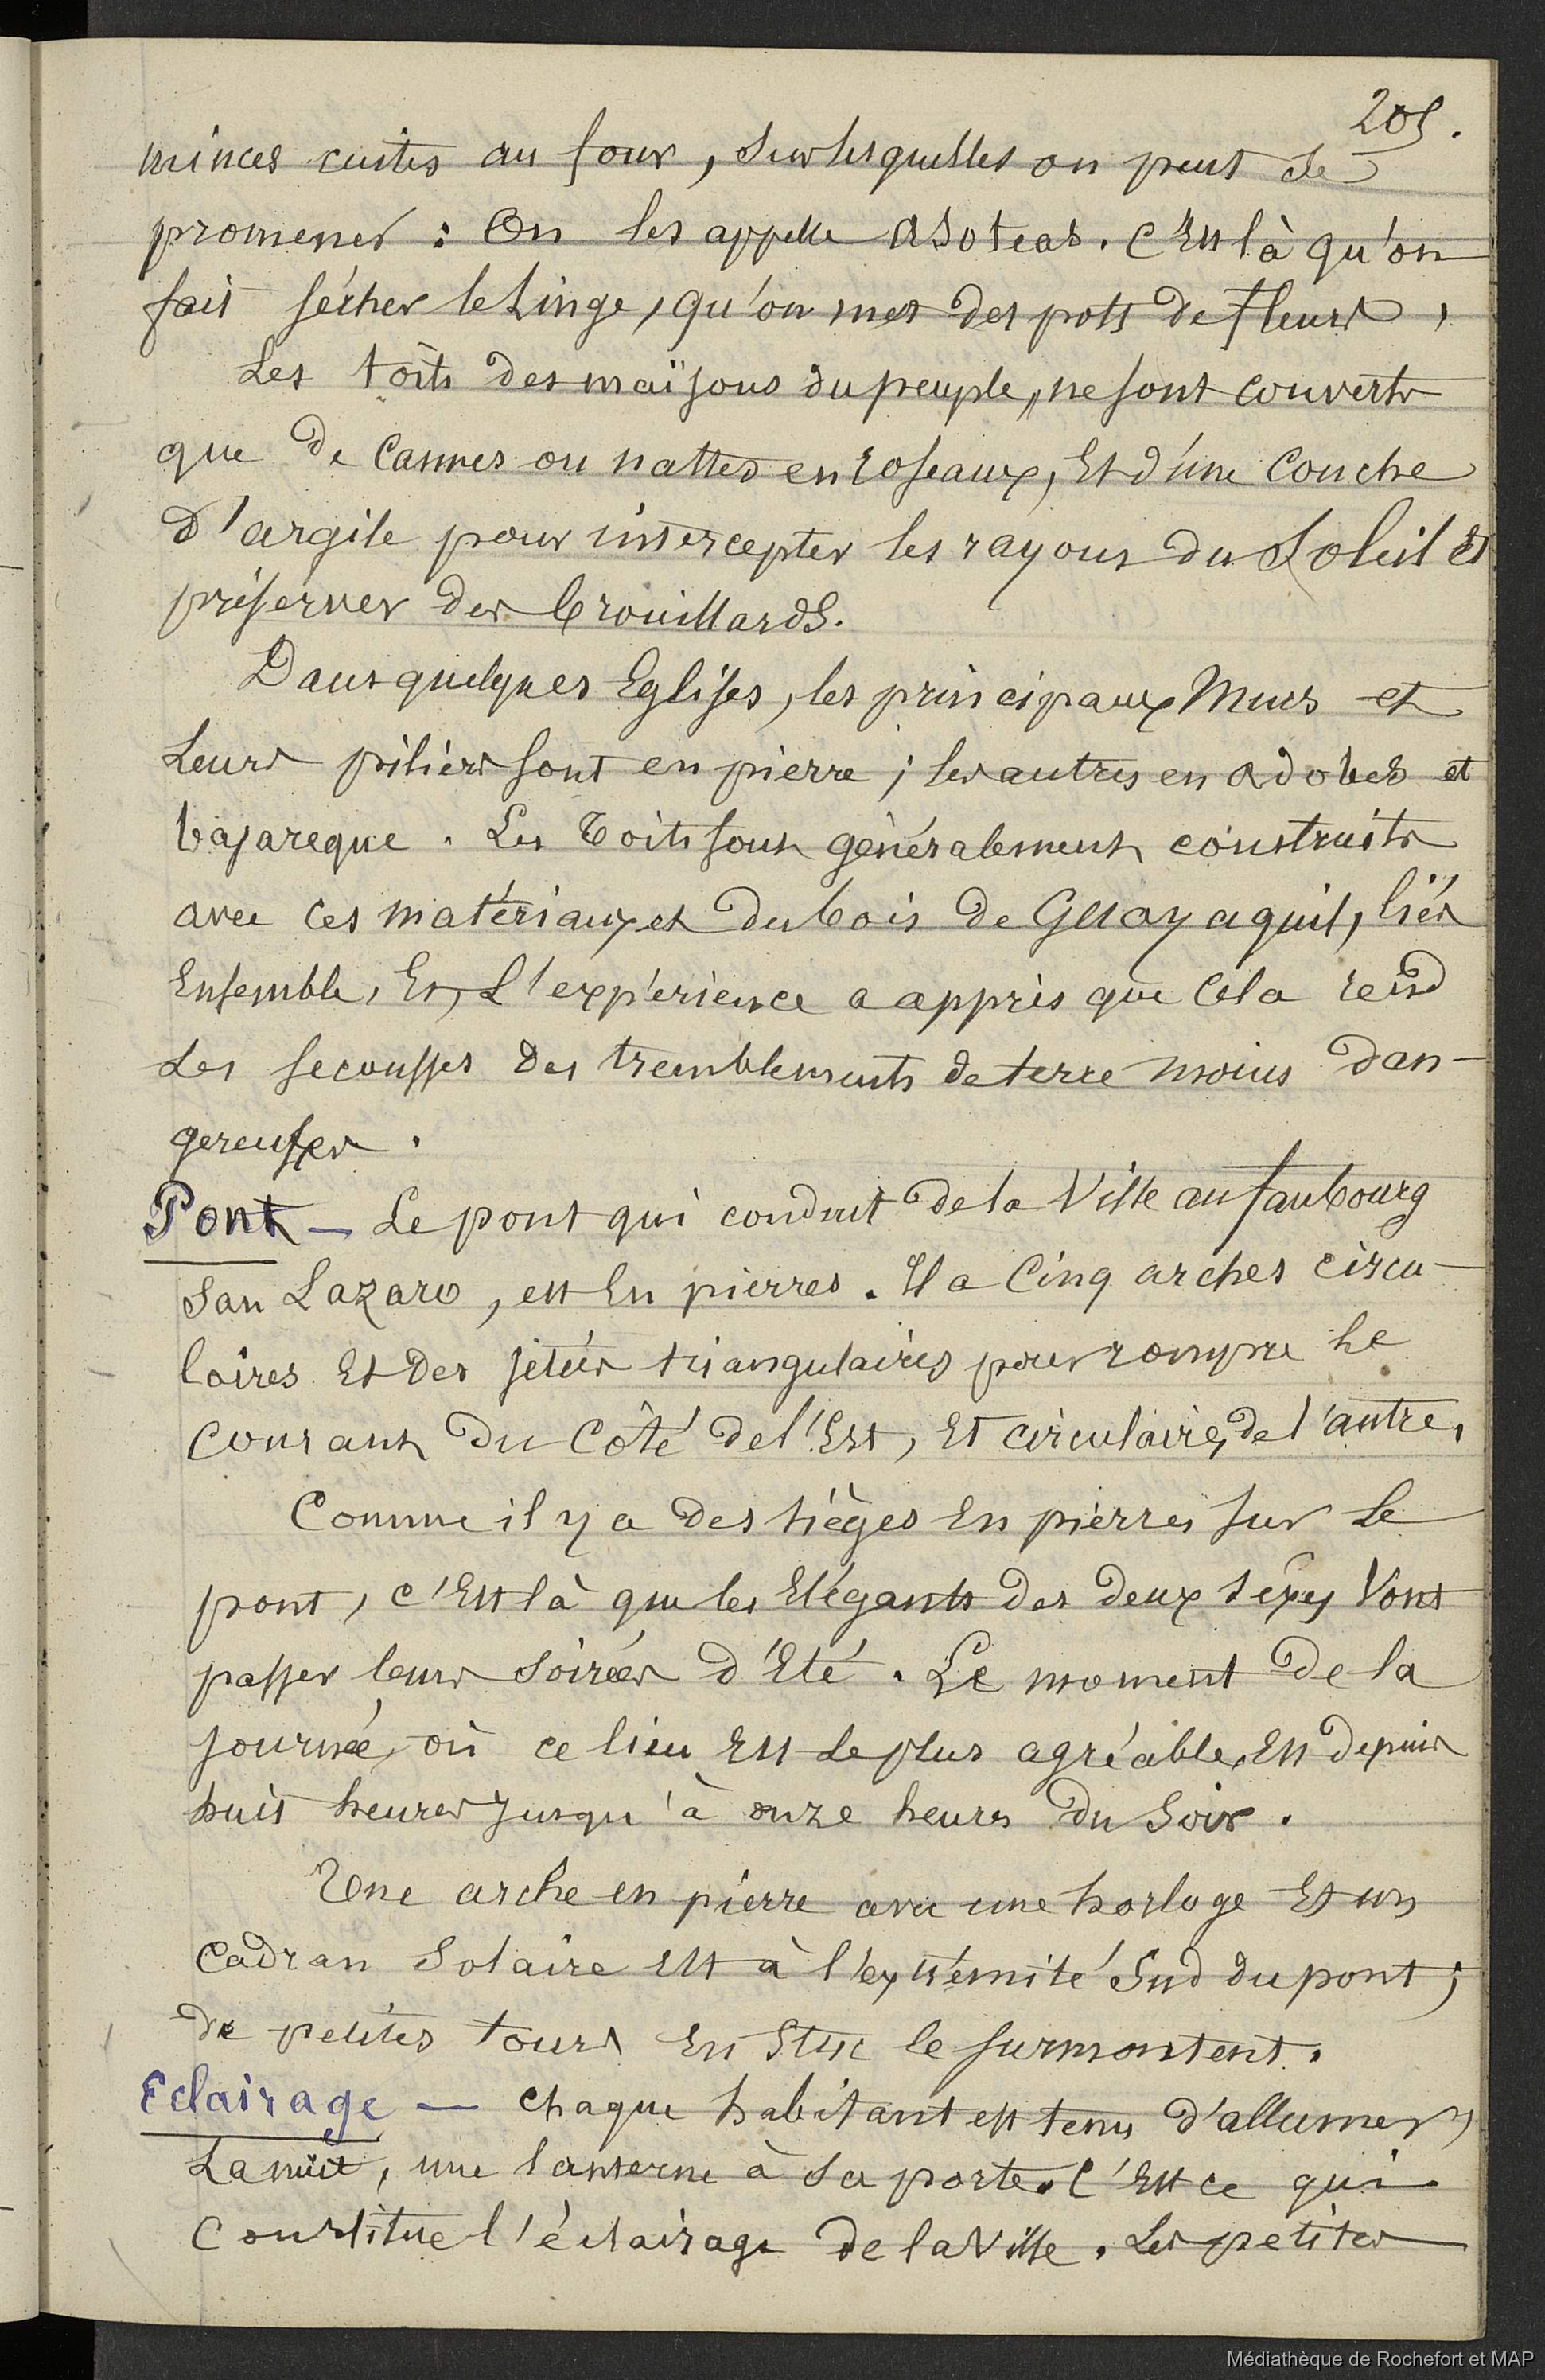 205.
minces cuites au four, sur lesquelles on peut se
promener : On les appelle asoteas. C'Est là qu'on
fait sécher le Linge, qu'on met des pots de Fleurs,
Les toîts des maïsons du peuple, ne sont couverts
que de Cannes ou nattes en roseaux, Et d'une Couche
d'argile pour intercepter les rayons du Soleil Et
préserver des brouillards.
Dans quelques Eglises, les principaux Murs et
Leurs piliers sont en pierre ; les autres en adobes et
bajareque. Les toits sont généralement construits
avec ces matériaux et du bois de Guayaquil, liés
Ensemble, Et, L'expérience a appris que Cela rend
Les secousses des tremblements de terre moins dan-
gereuses.
Pont — Le pont qui conduit de la Ville au faubourg
San Lazaro, est En pierres. Il a Cinq arches circu-
laires Et des jetées triangulaires pour rompre le
Courant du Côté de l'Est, Et circulaires, de l'autre,
Comme il y a des sièges En pierres sur Le
pont, c'Est là que les Elégants des deux sexes Vont
passer leurs Soirées d'Eté. Le moment de la
journée, où ce lieu Est Le plus agréable, Est depuis
huit heures jusqu'à onze heures du Soir.
Une arche en pierre avec une horloge Et un
Cadran Solaire Est à l'extrémité Sud du pont ;
de petites tours En Stuc le surmontent.
Eclairage — Chaque habitant est tenu d'allumer,
La nuit, une lanterne à sa porte. C'Est ce qui
Constitue l'éclairage de la Ville. Les petites
Médiathèque de Rochefort et MAP